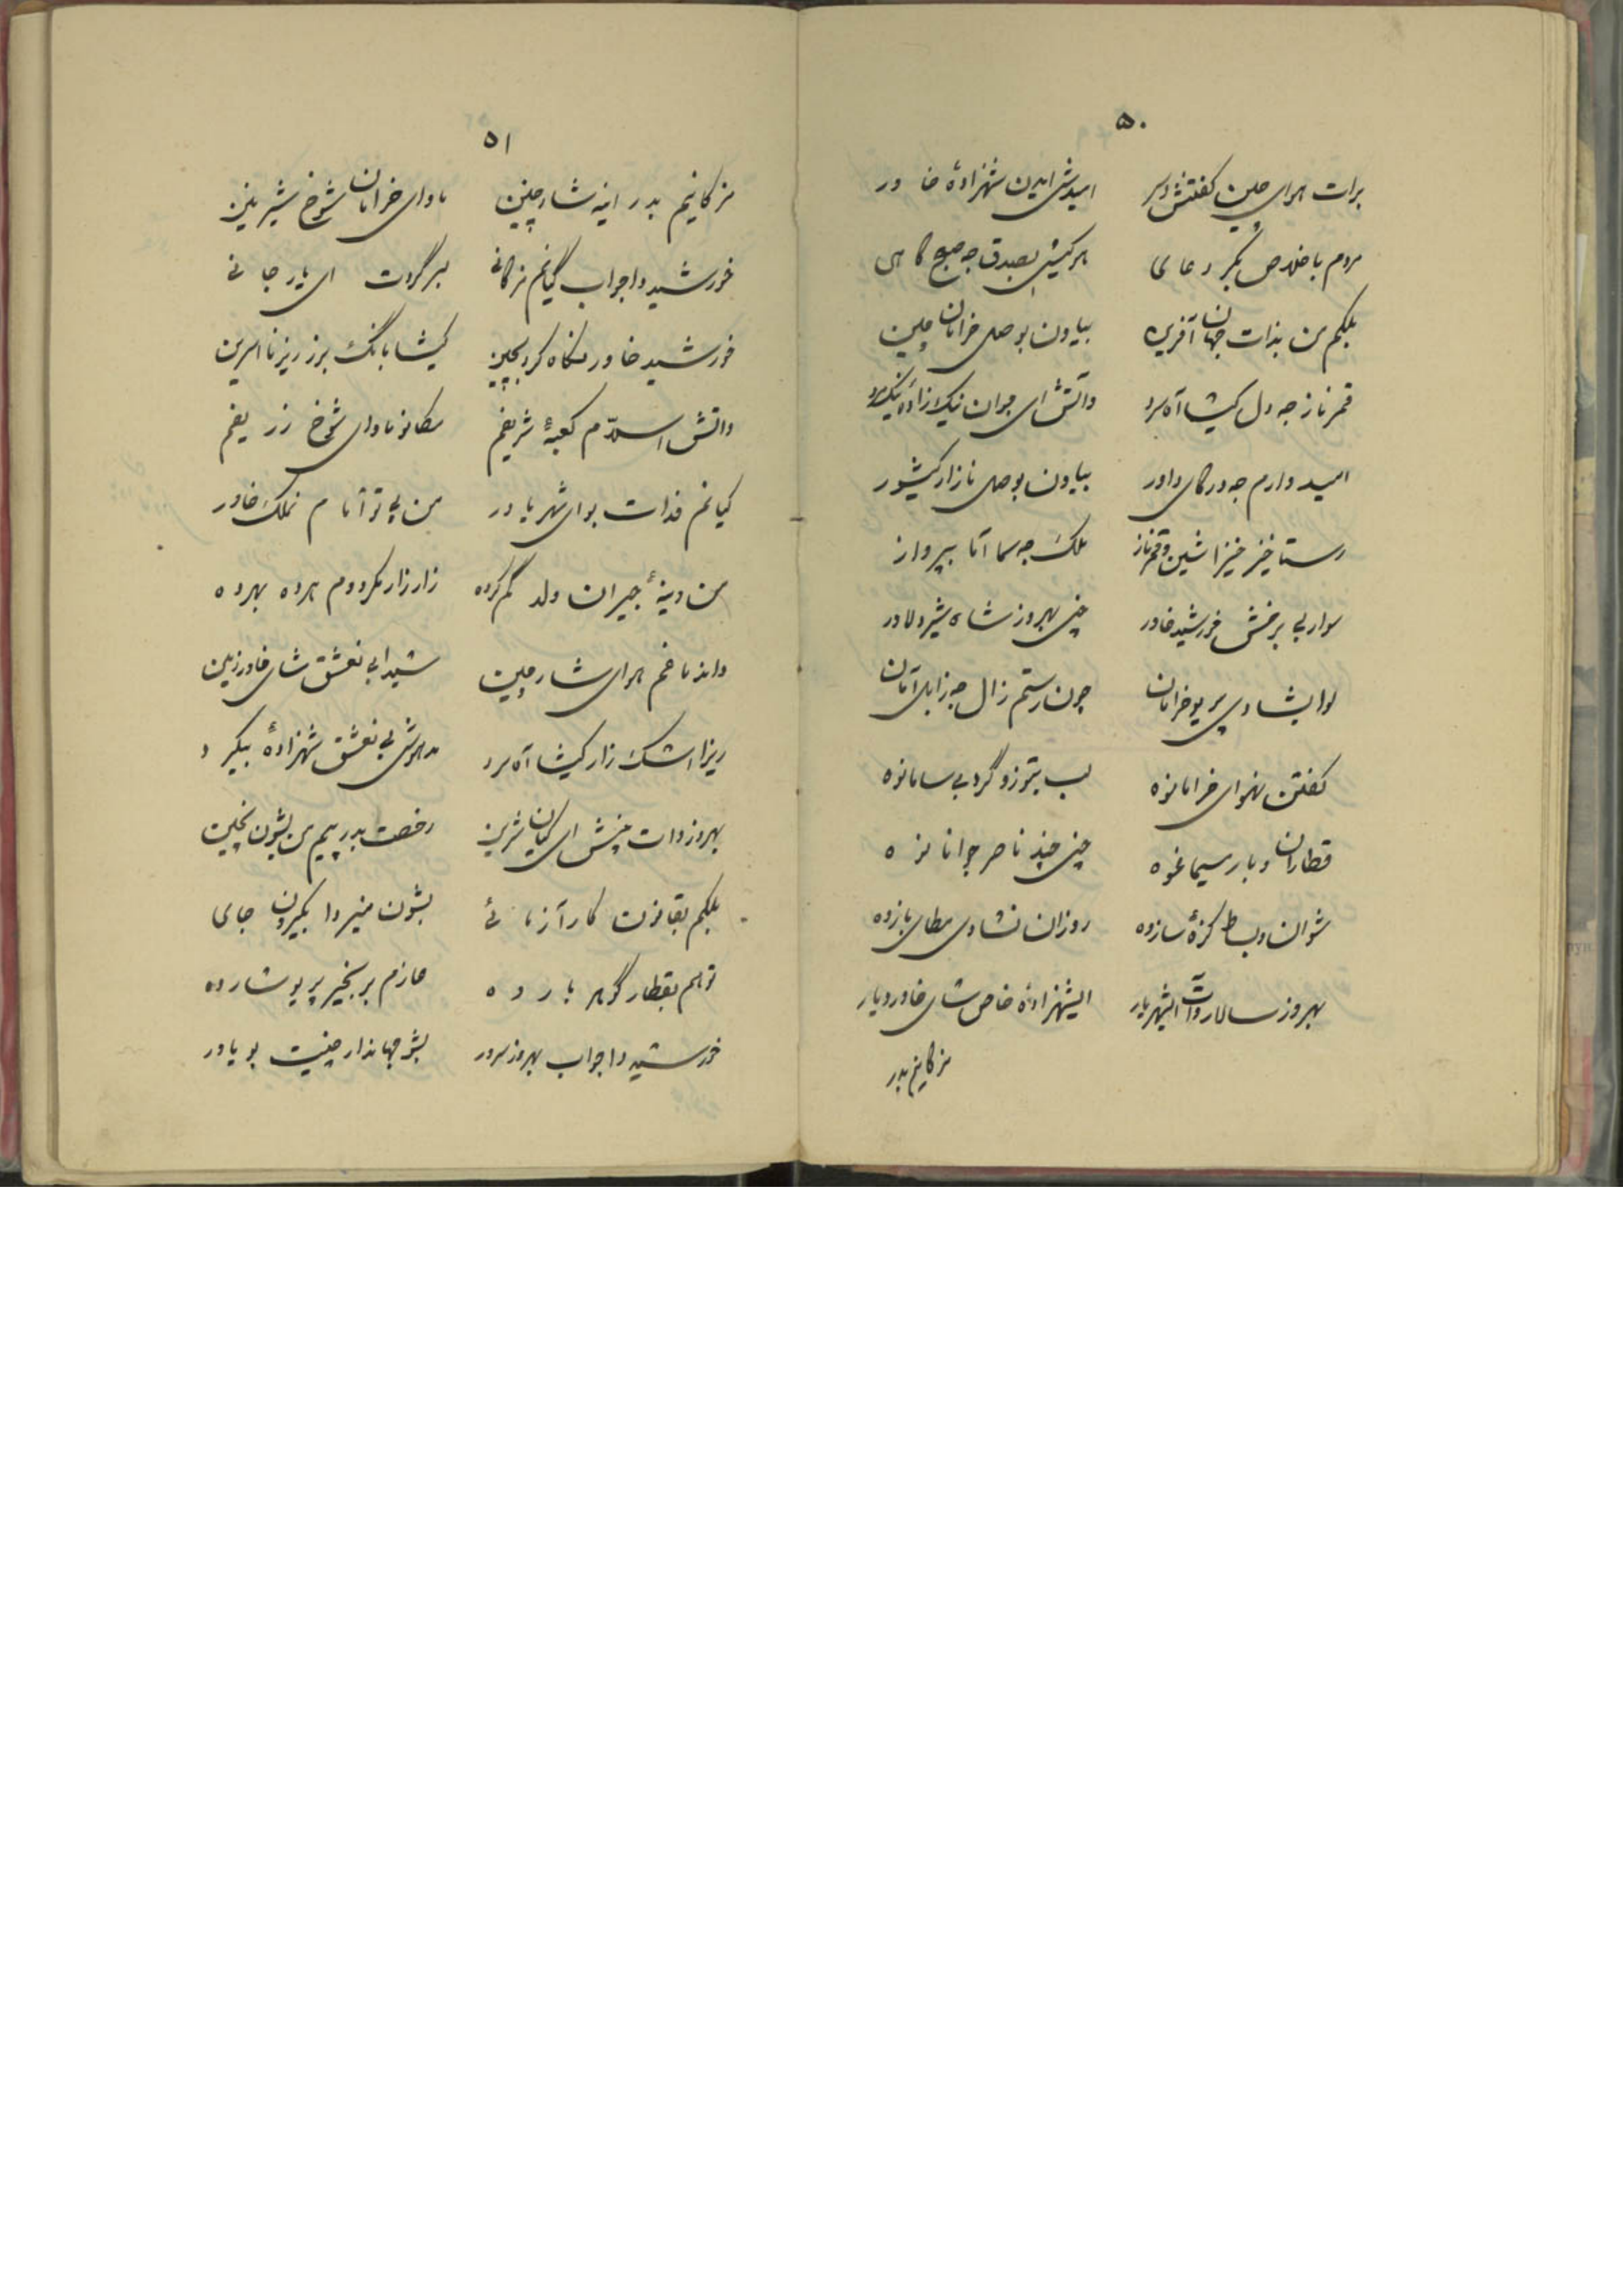 ۵۰
برات هرای چین کفتش دیر امیدش ایدن شهزادهٔ خاور
مردم باخلاص بکر دعای هرکیش بصدق جه صبح کاهی
بلکم من بذات جهان آفرین بیاون بوصل خرامان چین
قمرناز جه دل کیشا آه سرد واتش ای جوان نیک زاده نیک مرد
امید دارم جه درکای داور بیاون بوصل نازار کیشور
رستاخیز خیزا شین و قمرناز ملک جه سما آما بپرواز
سوار بی برخش خورشید خاور چنی بهروز شاه شیر دلاور
لوا بشادی پریو خرامان چون رستم زال جه زابل آمان
کفتن نهوای خرامانوه لب بتوز و گرد بی سامانوه
قطاران و بار سیماغوه چنی چند ناصر جوانانوه
شوان و بساط کزهٔ سازوه روزان نشادی مطای بازوه
بهروز سالار وات ایشهریار ایشهزادهٔ خاص شای خاور دیار
مزکانیم بدر
۵۱
مزکانیم بدر اینه شار چین ماوای خرامان شوخ شیرین
خورشید واجواب گیانم مزکانی لبر گردت ای یار جانی
خورشید خاور نگاه کرد بچین کیشا بانگ برز ریزنا اسرین
واتش اسلام کعبهٔ شریفم مکانو ماوای شوخ زریفم
گیانم فدات بو ای شهر یادر من پی تو آمام نملک خاور
من دینهٔ جیران ولد گم کرده زار زار مکردوم هرده بهرده
وانه ناخم هرای شار چین شیدا بی نعشق شای خاور زمین
ریزا اشک زار کیشا آه سرد مدهوش بی نعشق شهزادهٔ بیکرد
بهروز وات چنش ای گیان شرین رخصت بدر پیم من بشون بچین
بلکم بقانون کار آزمائی بشون منیروا بکیرون جای
توهم بقطار گوهر بارده عازم بر بخیر پریو شارده
خورشید واجواب بهروز سرور بشو جهاندار چنیت بو یاور